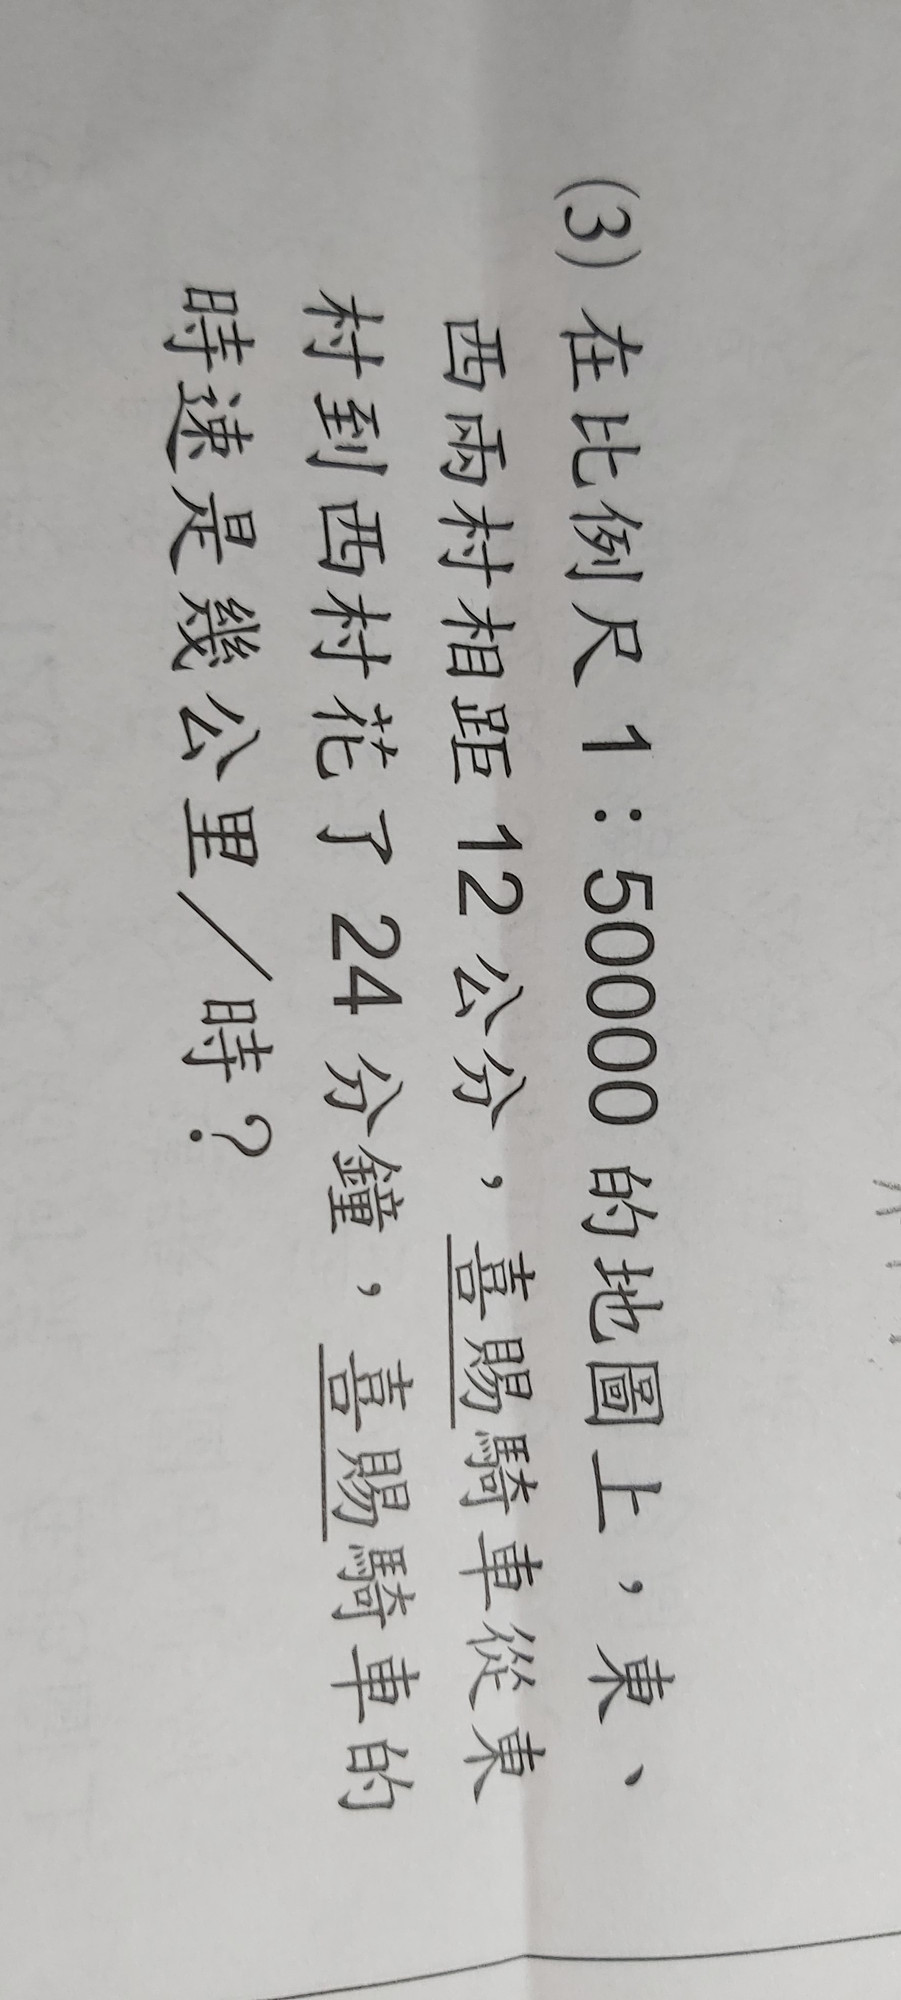 (3) 在比例尺 1：50000 的地圖上，東、
西兩村相距 12 公分，喜賜騎車從東
村到西村花了 24 分鐘，喜賜騎車的
時速是幾公里／時？